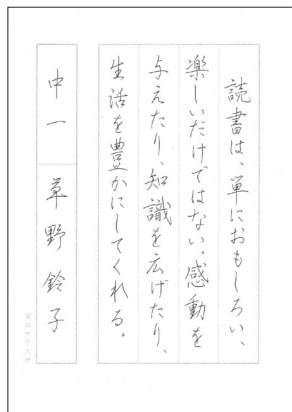 読書は、単におもしろい、
楽しいだけではない。感動を
与えたり、知識を広げたり、
生活を豊かにしてくれる。
中一 草野鈴子